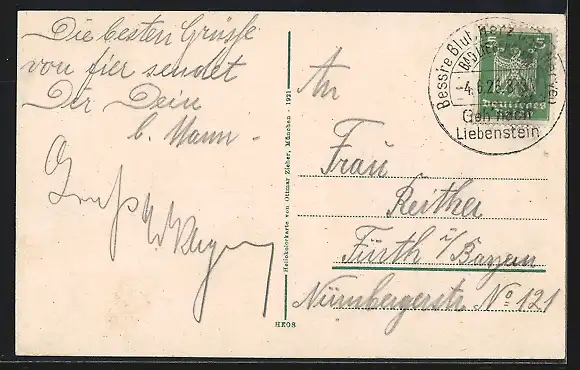 Die besten Grüsse
von hier sendet
Dir Dein
b. Mann -
Gruß
An
Frau
Reither
Fürth i/Bayern
Nürnbergerstr No 121
Heliokolorkarte von Ottmar Zieher, München 1921
HK08
Bessre Blut, Herz
BAD LIE
-4.6.26.8
Geh nach
Liebenstein
5 5
Deutsches